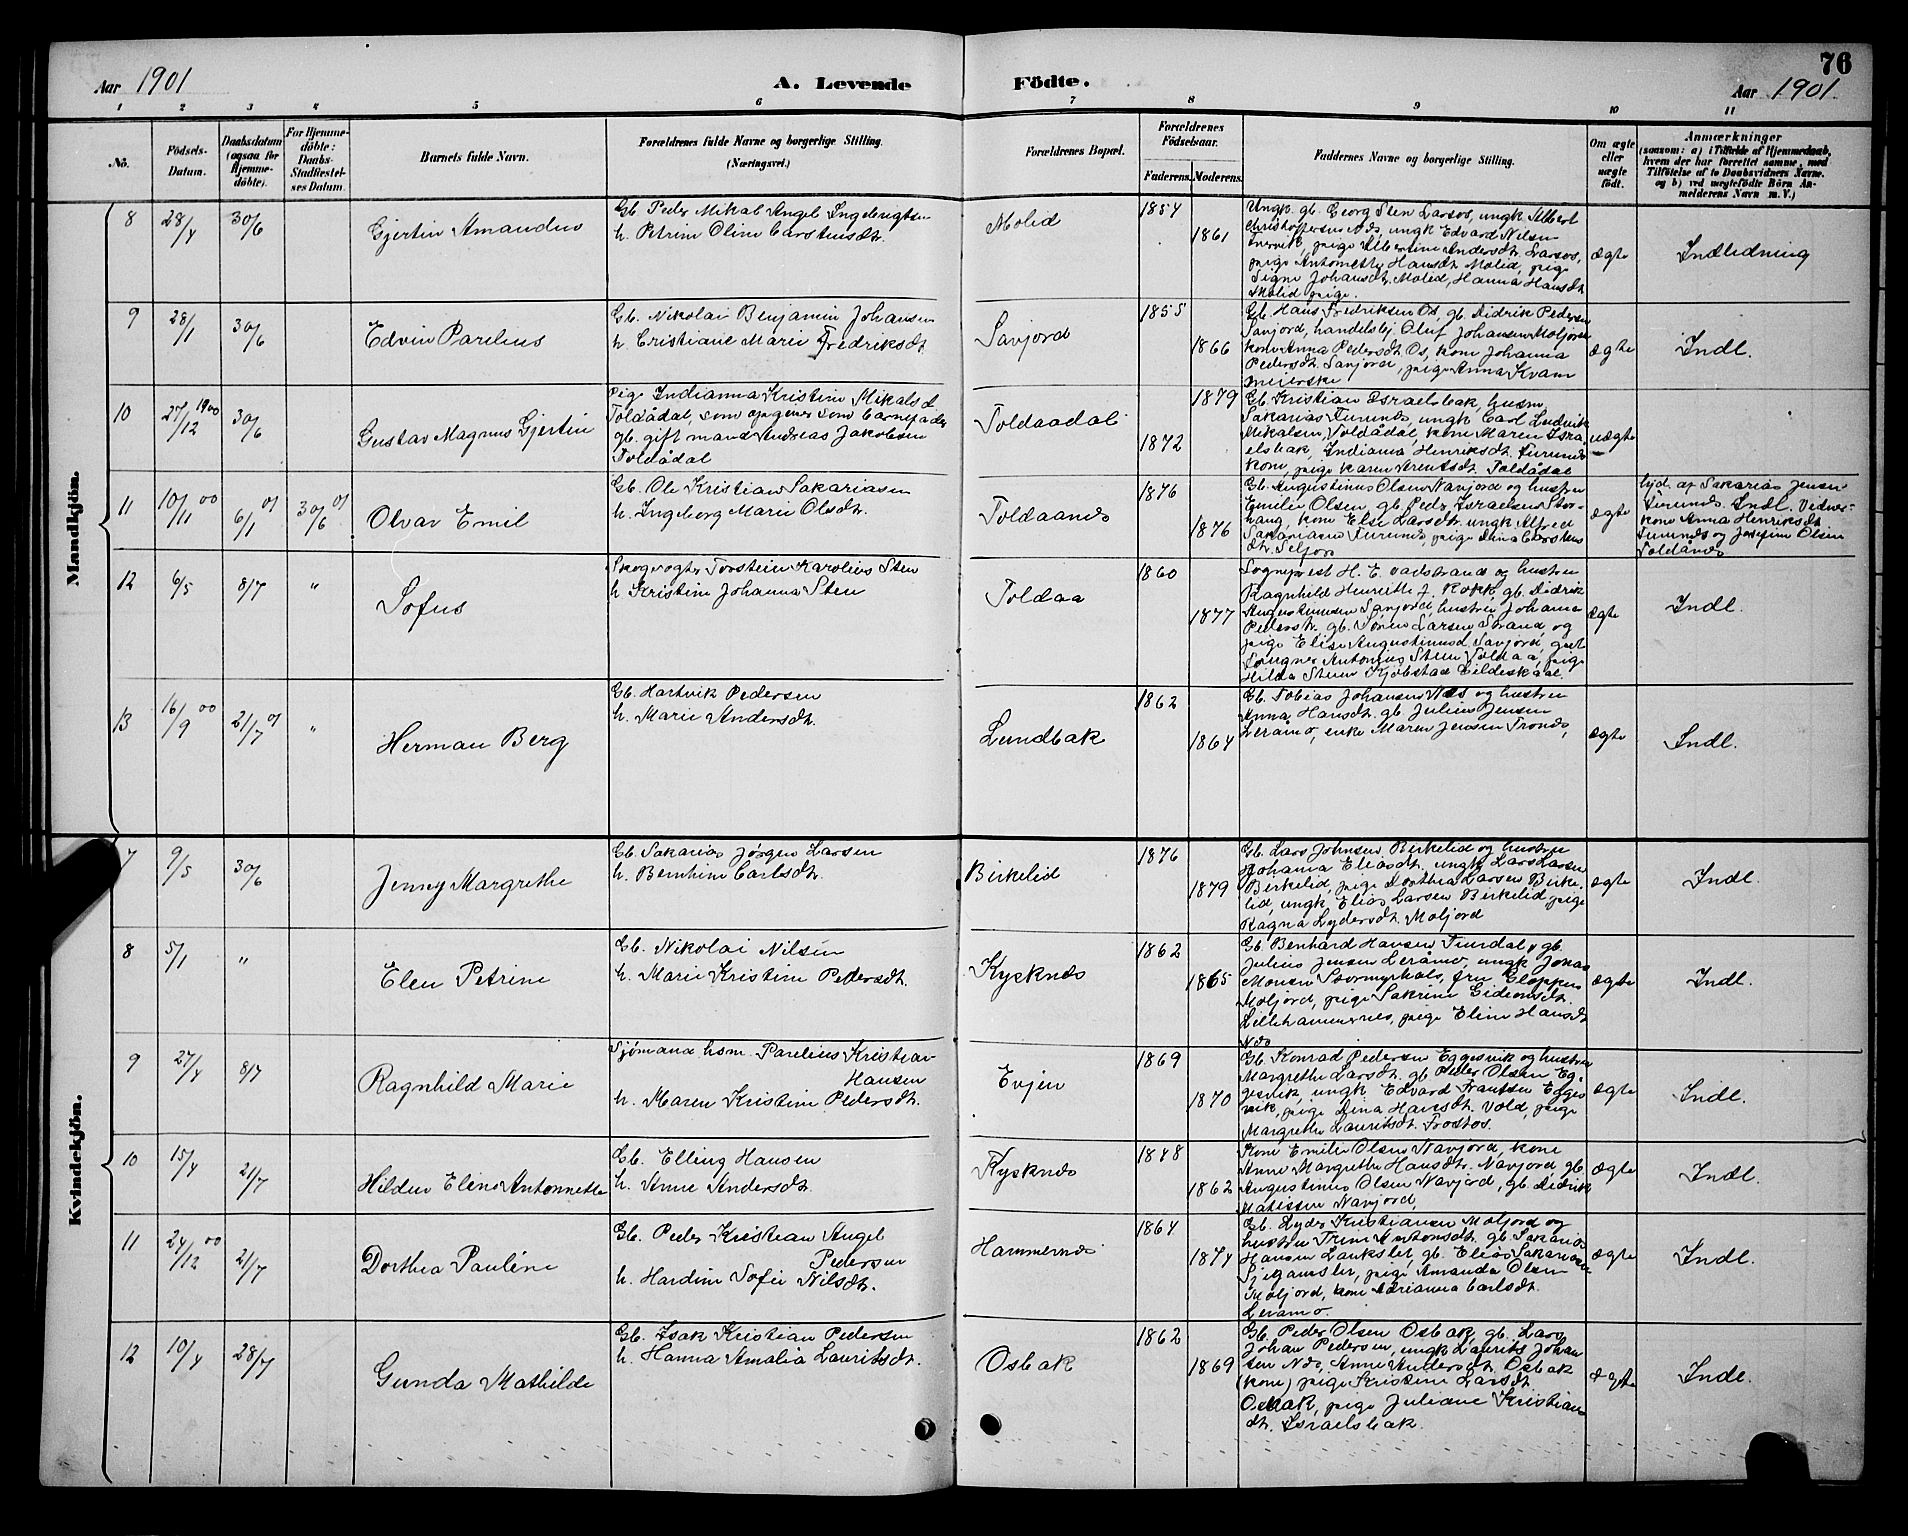 76
Aar 1901
A. Levende Födte.
Aar 1901.
1 2 3 4 5 6 7 8 9 10 11
No.
Födsels-Datum.
Daabsdatum (ogsaa for Hjemmedöbte).
For Hjemmedöbte: Daabs-Stadfæstelses Datum.
Barnets fulde Navn.
Forældrenes fulde Navne og borgerlige Stilling.
(Næringsvei.)
Forældrenes Bopæl.
Forældrenes Födselsaar.
Faderens. Moderens.
Faddernes Navne og borgerlige Stilling.
Om ægte eller uægte födt.
Anmærkninger
(saasom: a) i Tilfælde af Hjemmedaab, hvem der har forrettet samme, med Tilföielse af to Daabsvidners Navne, og b) ved uægtefödte Börn Anmelderens Navn m. V.)
Mandkjön.
8 28/4 30/6 Gjertin Amandus
Gb. Peder Mikal Angel Ingebrigtsen
h. Petrine Oline Carstensdt.
Molid 1854 1861
Ungk. gb. Georg Sten Larsos, ungk Albert
Christoffersen Nds, ungk Edvard Nilsen
pige Albertine Andersdt. Larsos,
pige Antonette Hansdt Molid, pige
Signe Johansdt. Molid, Hanna Hansdt
Molid pige.
ægte Indledning
9 28/1 30/6 Edvin Parelius
Gb. Nikolai Benjamin Johansen
h. Cristiane Marie Fredriksdt.
Savjord 1855 1866
Gb. Hans Fredriksen Os, gb. Didrik Pedersen
Savjord, handelsbj. Oluf Johansen Moljord
kone Anna Pedersdt Os, kone Johanna
Pedersdt. Savjord, pige Anna Kvam
meierske
ægte Indl.
10 27/12 1900 30/6 Gustav Magnus Gjertin
Pige Indianna Kristine Mikalsd
Toldådal, som opgiver som barnefader
gb. gift mand Andreas Jakobsen
Toldådal
Toldaadal 1872 1879
Gb. Kristian Israelsbak, husm.
Sakarias Furunds, ungk Carl Ludvik
Mikalsen, Toldådal, kone Maren Isra
elsbak, Indiana Henriksdt. Furunds
kone, pige Karen Arentsdt. Toldådal
uægte
11 10/11 00 6/1 01 30/6 01 Olvar Emil
Gb. Ole Kristian Sakariasen
h. Ingeborg Marie Olsdt.
Toldaands 1876 1876
Gb. Augustinus Olsen Navjord og hustru
Emilie Olsen, gb. Peds. Israelsen Stor-
haug, kone Else Larsdt. ungk Alfred
Sakariasen Furunds, pige Dina Carstens
dt. Selfors
ægte
hjd. af Sakarias Jensen
Furunds. Indl. Vidner
kone Anna Henriksdt
Furunds og Josefine Olsen
Toldånds
12 6/5 8/7 " Sofus
Skogvogter Torstein Karolius Sten
h. Kristine Johanna Sten
Toldaa 1860 1877
Sogneprest H. E. og hustru
Ragnhild Henriette J. Kokk, gb. Didrik
Augustinusen Savjord hustru Johanna
Pedersdt. gb. Sören Larsen Strand og
pige Elise Augustinusd. Savjord, gaet
Antonius Sten Toldaa, pige
Hilda Steen Kjøbstad Gildeskaal
ægte Indl.
13 16/9 00 21/7 01 " Herman Berg
Gb. Hartvik Pedersen
h. Marie Andersdt.
Lundbak 1862 1864
Gb. Tobias Johansen Nds og hustru
Anna Hansdt. gb. Julius Jensen
Leråmo, enke Maren Jensen Tronds,
ægte Indl.
Kvindekjön.
7 9/5 30/6 Jenny Margrethe
Gb. Sakarias Jörgen Larsen
h. Bernhine Carlsdt.
Birkelid 1876 1879
Gb. Lars Johnsen Birkelid og hustru
Johanna Eliasdt, ungk Lars Larsen
Birkelid, pige Dorthea Larsen Birke
lid, ungk Elias Larsen Birkelid, pige
Ragna Lydersdt. Moljord
ægte Indl.
8 5/1 " Elen Petrine
Gb. Nikolai Nilsen
h. Marie Kristine Pedersdt.
Kysknds 1862 1865
Gb. Benhard Hansen Tverdal, gb.
Julius Jensen Leråmo, ungk Jonas
Monsen Stormyrhals, fru Gloppen
Moljord, pige Sakrine Gideonsdt.
Lillehammernes, pige Eline Hansdt
Nds
ægte Indl.
9 27/4 8/7 Ragnhild Marie
Sjömand hsm. Parelius Kristian
Hansen
h. Maren Kristine Pedersdt.
Evjen 1869 1870
Gb. Konrad Pedersen Eggesvik og hustru
Margrethe Larsdt. gb. Peder Olsen Eg-
gesvik, ungk Edvard Frantsen Egges
vik, pige Dina Hansdt. Vold, pige
Margrethe Lauritsdt. Trostos.
ægte Indl.
10 15/4 21/7 Hilden Eline Antonnette
Gb. Elling Hansen
h. Anne Andersdt.
Kysknds 1848 1862
Kone Emilie Olsen Navjord, kone
Anne Margrethe Hansdt. Navjord, gb.
Augustinus Olsen Navjord, gb. Didrik
Matissen Navjord,
ægte Indl.
11 24/12 00 21/7 Dorthea Pauline
Gb. Peder Kristian Angel
Pedersen
h. Hardine Sofie Nilsdt.
Hammernds 1864 1874
Gb. Lyder Kristiansen Moljord og
hustru Trine Antonsdt. gb. Sakarias
Hansen Lanksler, gb. Elias Sakariasen
pige Amanda Olsen
Moljord, kone Adrianna Carlsdt.
Leramo.
ægte Indl.
12 10/4 28/7 Gunda Mathilde
Gb. Isak Kristian Pedersen
h. Hanna Amalia Lauritsdt.
Osbak 1862 1869
Gb. Peder Olsen Osbak, gb. Lars
Johan Pedersen, ungk Laurits Johan
sen Nds, Anne Andersdt. Osbak
(kone) pige Kristine Larsdt.
Osbak, pige Juliane Kristians
dt. Israelsbak.
ægte Indl.